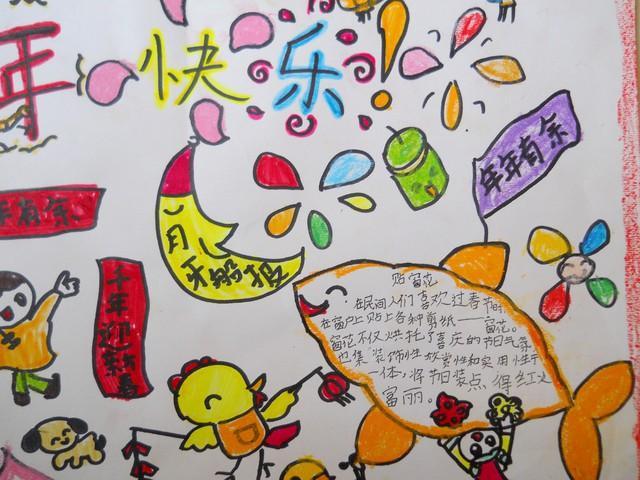 年快乐
年年有余
年有余
月牙船报
千年迎新春
贴窗花
在民间人们喜欢过春节前
在窗户上贴上各种剪纸——窗花。
窗花不仅烘托了喜庆的节日气氛
也集装饰性欣赏性和实用性于
一体,将节日装点得红火
富丽。